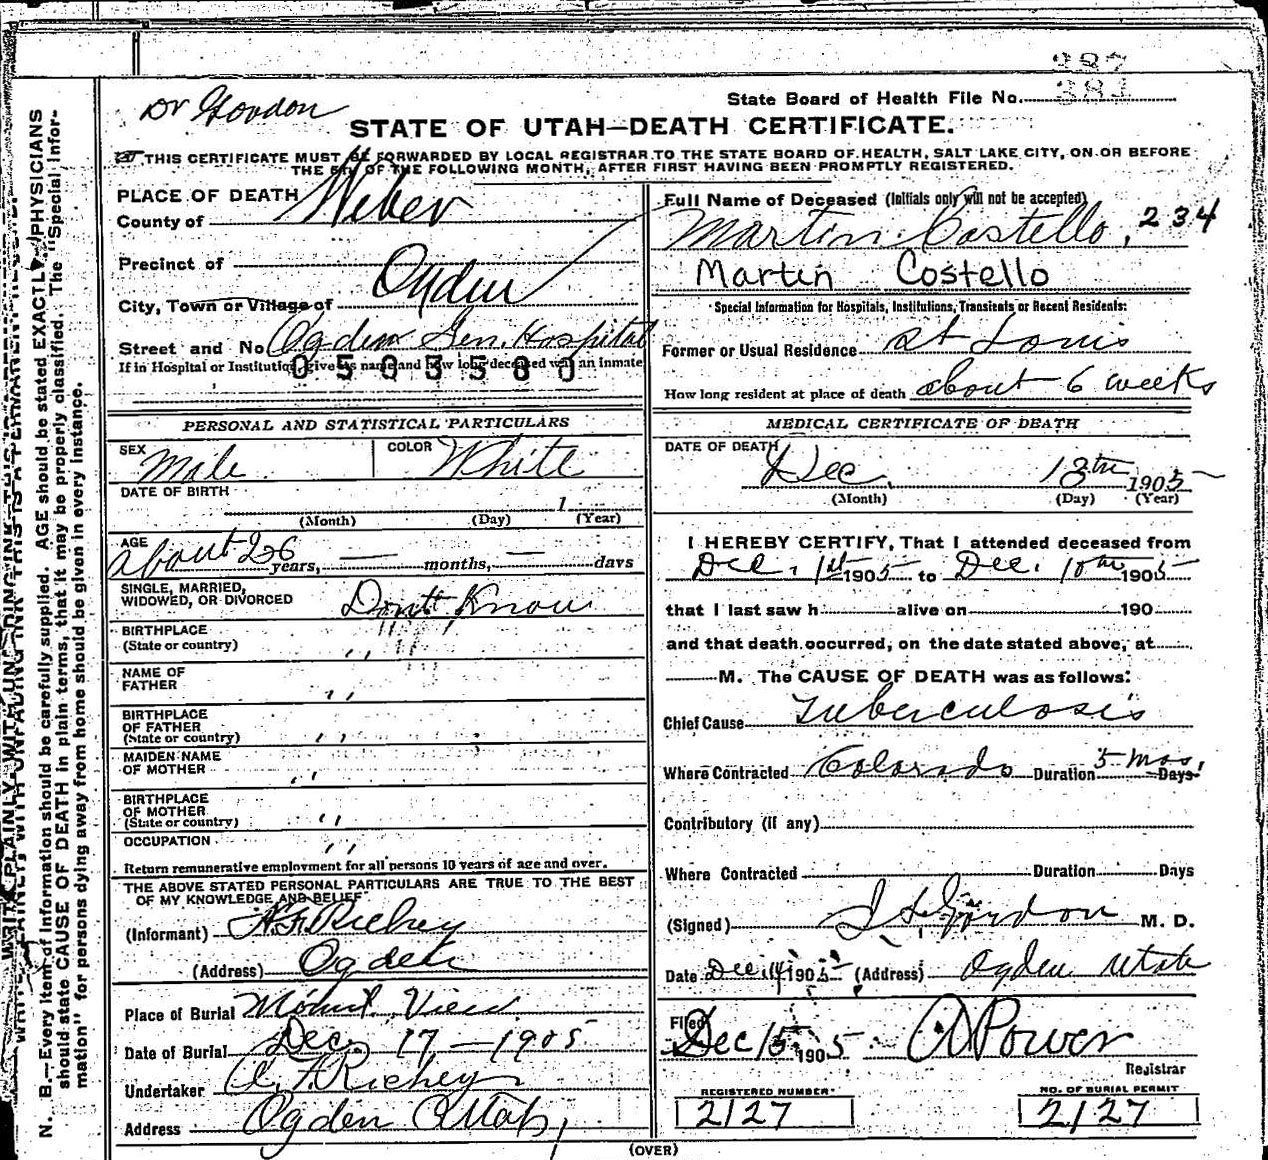 387
381
Dr Gordon
State Board of Health File No.
STATE OF UTAH—DEATH CERTIFICATE.
THIS CERTIFICATE MUST BE FORWARDED BY LOCAL REGISTRAR TO THE STATE BOARD OF HEALTH, SALT LAKE CITY, ON OR BEFORE
THE 5th OF THE FOLLOWING MONTH, AFTER FIRST HAVING BEEN PROMPTLY REGISTERED.
PLACE OF DEATH
County of Weber
Precinct of
City, Town or Village of Ogden
Street and No Ogden Gen. Hospital
If in Hospital or Institution, give its name and how long deceased was an inmate
0503580
PERSONAL AND STATISTICAL PARTICULARS
SEX Male COLOR White
DATE OF BIRTH
1
(Month) (Day) (Year)
AGE
about 26 years, — months, — days
SINGLE, MARRIED,
WIDOWED, OR DIVORCED Dont Know
BIRTHPLACE
(State or country) ,,
NAME OF
FATHER ,,
BIRTHPLACE
OF FATHER
(State or country) ,,
MAIDEN NAME
OF MOTHER ,,
BIRTHPLACE
OF MOTHER
(State or country) ,,
OCCUPATION ,,
Return remunerative employment for all persons 10 years of age and over.
THE ABOVE STATED PERSONAL PARTICULARS ARE TRUE TO THE BEST
OF MY KNOWLEDGE AND BELIEF
(Informant) Richey
(Address) Ogden
Place of Burial Mount View
Date of Burial Dec. 17—1905
Undertaker Richey
Address Ogden Utah
Full Name of Deceased (Initials only will not be accepted)
Martin Costello, 234
Martin Costello
Special Information for Hospitals, Institutions, Transients or Recent Residents:
Former or Usual Residence St Louis
How long resident at place of death about 6 weeks
MEDICAL CERTIFICATE OF DEATH
DATE OF DEATH
Dec. 13th 1905
(Month) (Day) (Year)
I HEREBY CERTIFY, That I attended deceased from
Dec. 1st 1905 to Dec. 1905
that I last saw h alive on 190
and that death occurred, on the date stated above, at
M. The CAUSE OF DEATH was as follows:
Chief Cause Tuberculosis
Where Contracted Colorado Duration 5 mos, Days
Contributory (if any)
Where Contracted Duration Days
(Signed) Gordon M. D.
Date Dec 14 1905 (Address) Ogden Utah
Filed Dec 15 1905 Power
Registrar
REGISTERED NUMBER
2127
NO. OF BURIAL PERMIT
2127
(OVER)
WRITE PLAINLY WITH UNFADING INK THIS IS A PERMANENT RECORD.
N. B.—Every item of Information should be carefully supplied. AGE should be stated EXACTLY. PHYSICIANS
should state CAUSE OF DEATH in plain terms, that it may be properly classified. The "Special Infor-
mation" for persons dying away from home should be given in every instance.